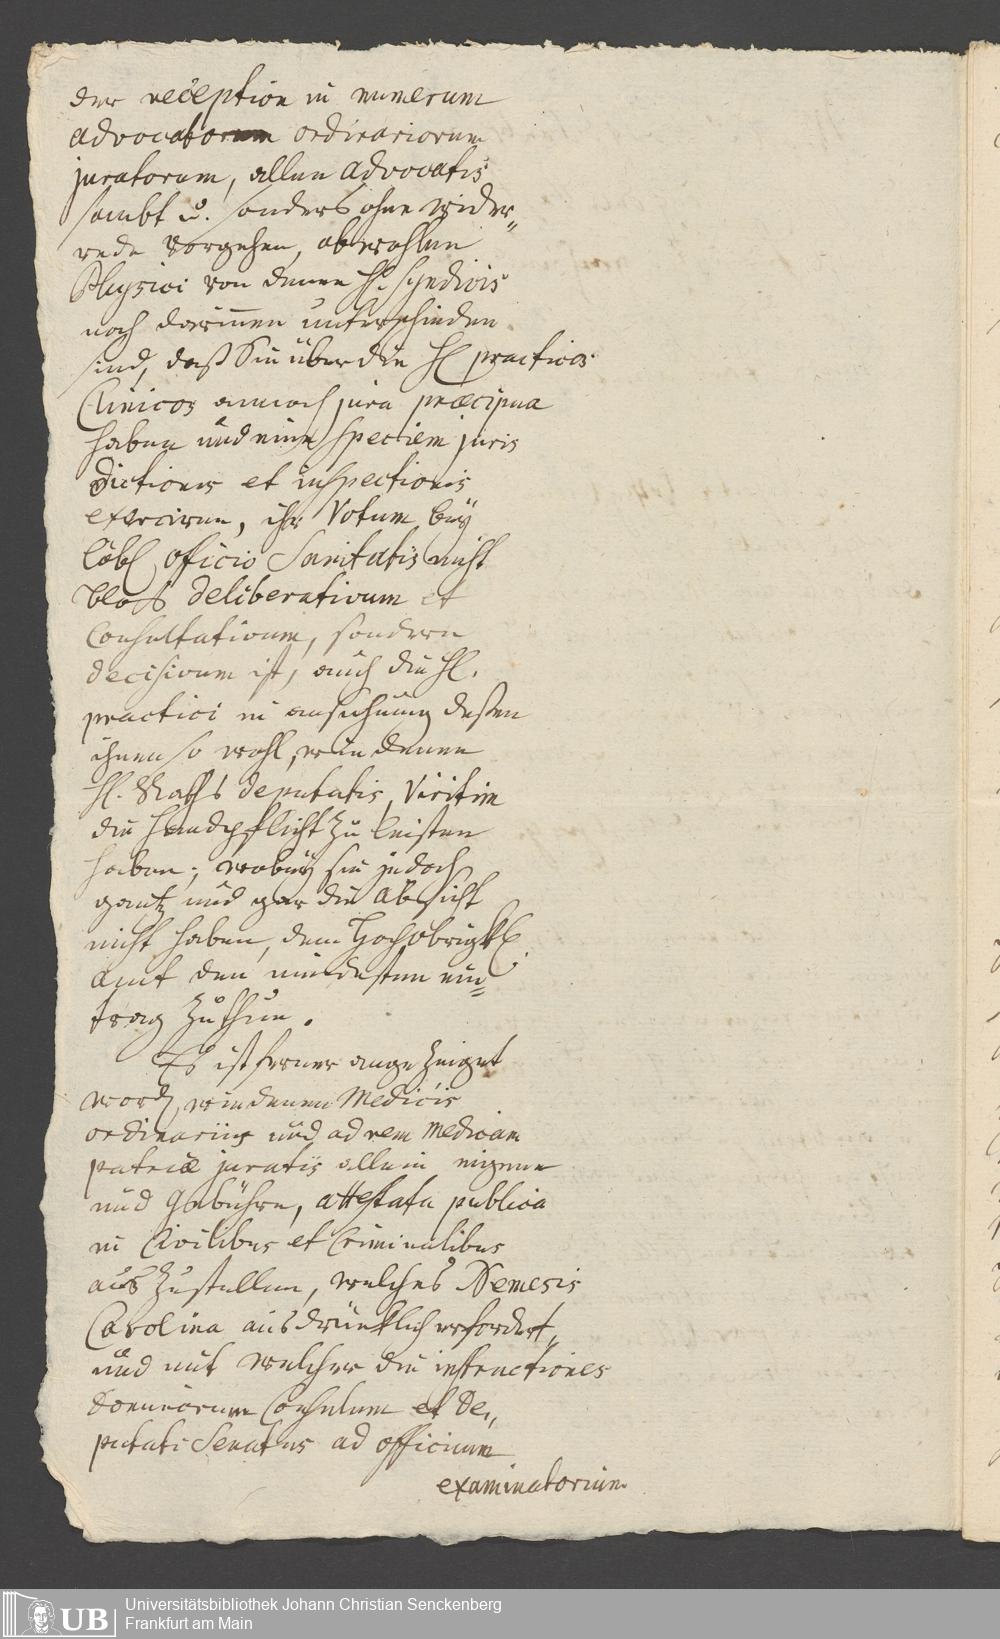 der reception in numerum
advocatorum ordinariorum
juratorum, allen advocatis
sambt u. sonders ohne wider„
rede vorgehen, obwohlen
Physici von denen H. syndicis
noch darinnen unterschieden
sind, daß Sie über die H practicos
Clinicos annoch jura præcipua
haben und eine speciem juris
dictionis et inspectionis
exerciren, ihr Votum bey
löbl officio Sanitatis nicht
bloß deliberativum et
Consultativum, sondern
decisivum ist, auch die H.
practici in ansehung deßen
ihnen so wohl, wie denen
H. Raths deputatis, viritim
die Handpflicht zu leisten
haben; wobey sie jedoch
gantz und gar die absicht
nicht haben, dem Hochobrigktl
amt den mindesten ein„
trag zu thun.
Es ist ferner angezeiget
word, wie denen Medicis
ordinariis und ad rem medicam
patriæ juratis allein eigene
und gebühre, attestata publica
in Civilibus et Criminalibus
auszustellen, welches Nemesis
Carolina ausdrücklich erfordert,
und mit welcher die instructiones
dominorum Consulum et De„
putati Senatus ad officium
examinatorium
UB
Universitätsbibliothek Johann Christian Senckenberg
Frankfurt am Main